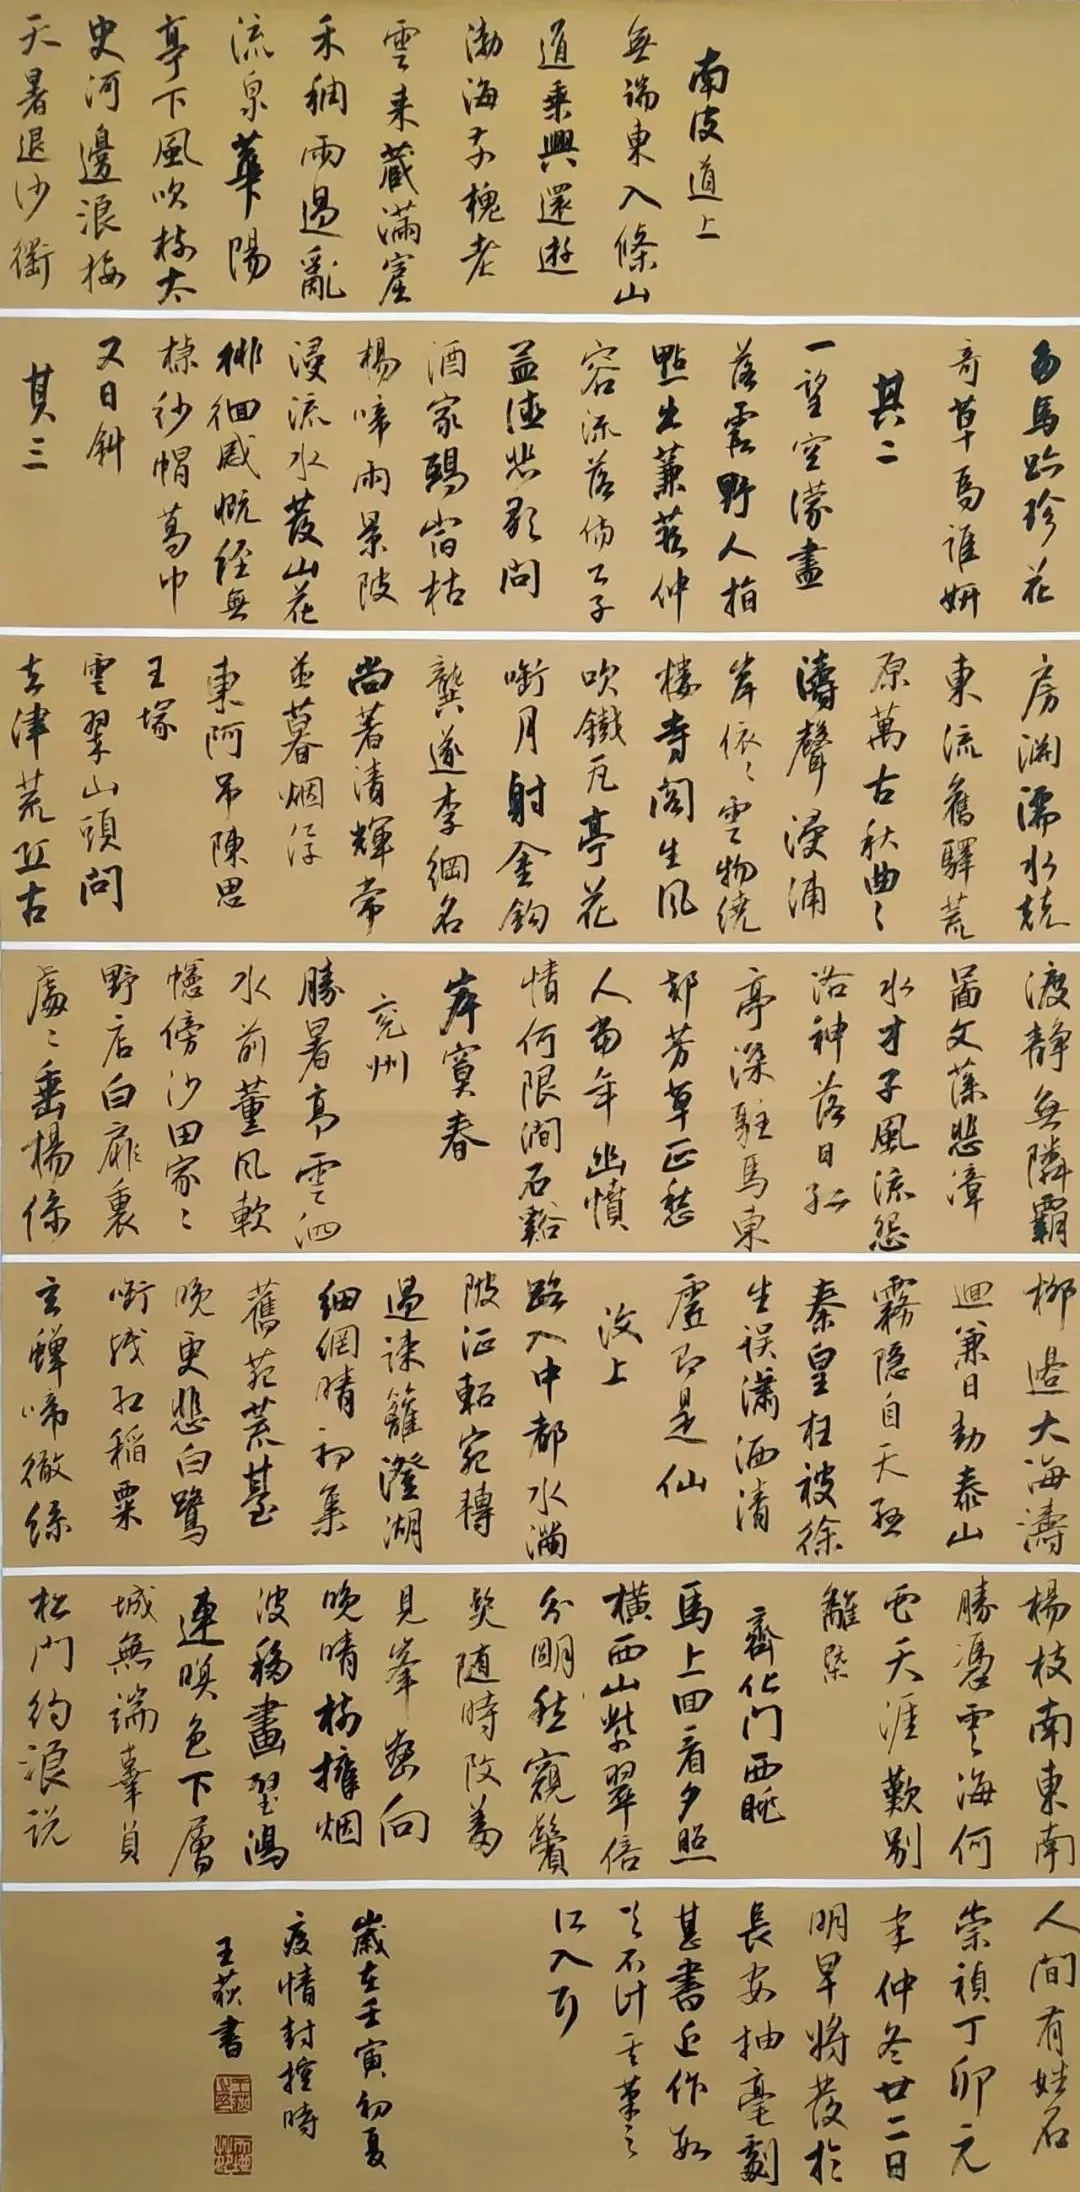 南皮道上
無端東入條山
道乘興還遊
渤海
雲來藏滿窟
禾稠雨過亂
流泉華陽
亭下風吹樹太
史河邊浪梅
天暑退沙衝
馬跡珍花
奇草為誰妍
其二
一望空濛盡
落霞野人指
點生蒹葭仲
容流落傷公子
益德悲歌問
酒家鵶宿枯
楊啼雨景陂
浸流水發山花
徘徊感慨經無
棣紗帽葛巾
又日斜
其三
房淵濡水競
東流舊驛荒
原萬古秋曲〻
濤聲浸浦
岸依〻雲物繞
樓寺閣生風
吹鐵瓦亭花
銜月射金鉤
龔遂李綱名
尚著清輝常
並暮烟浮
東阿吊陳思
王塚
雲翠山頭問
去津荒丘古
渡靜無隣霸
圖文藻悲漳
水才子風流怨
洛神落日孤
亭深駐馬東
都芳草正愁
人當年幽憤
情何限澗石谿
岸寞春
兗州
勝暑高雲泗
水前薰風軟
幰傍沙田家〻
野店白扉裏
處〻垂楊係
柳邊大海濤
迴兼日動泰山
霧隱自天
秦皇枉被徐
生誤瀟洒清
虛即是仙
汶上
路入中都水滿
陂征軺宛轉
過疎籬澄湖
細網晴初集
舊苑荒臺
晚更悲白鷺
銜殘紅稻粟
玄蟬啼徹綠
楊枝南東南
勝憑雲海何
處天涯歎別
離
齊化門西眺
馬上回看夕照
橫西山紫翠倍
分明愁窺鬢
髮隨時改羞
見峯巒向
晚晴樹擁烟
波移畫壁鴻
連暝色下層
城無端辜負
松門約浪說
人間有姓名
崇禎丁卯元
宰仲冬廿二日
明早將發於
長安抽毫劇
甚書近作数
首不計工拙
江入可
歲在壬寅初夏
疫情封控時
王荻書